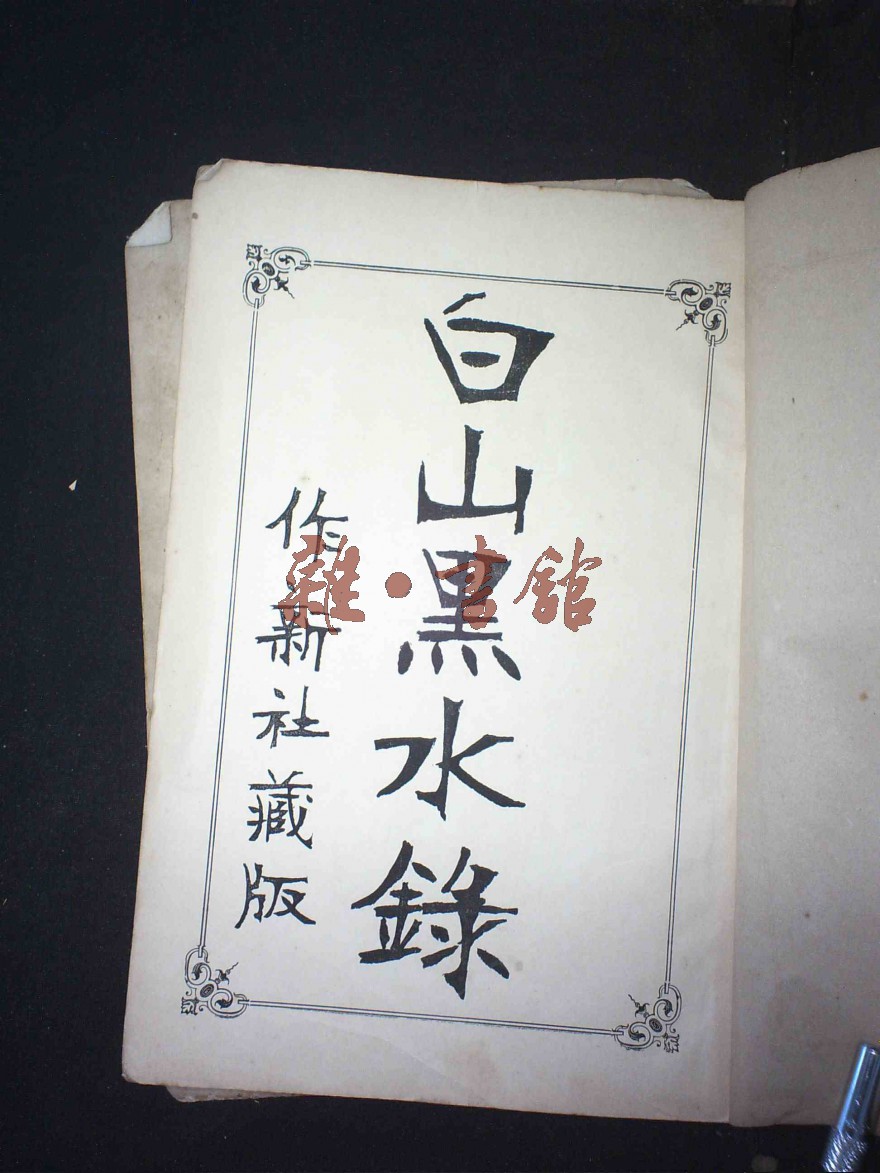 白山黑水錄
作新社藏版
雜·書館